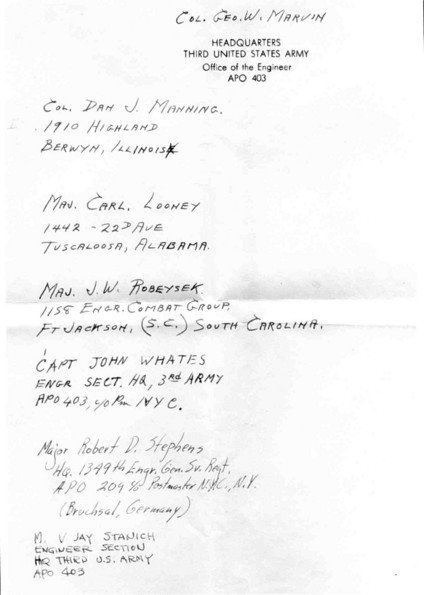 COL. GEO. W. MARVIN
HEADQUARTERS
THIRD UNITED STATES ARMY
Office of the Engineer
APO 403
COL. DAN J. MANNING.
1910 HIGHLAND
BERWYN, ILLINOIS
MAJ. CARL. LOONEY
1442 - 22D AVE
TUSCALOOSA, ALABAMA.
MAJ. J.W. ROBEYSEK.
1158 ENGR. COMBAT GROUP.
FT JACKSON, (S.C.) SOUTH CAROLINA.
CAPT JOHN WHATES
ENGR SECT. HQ, 3RD ARMY
APO 403, c/o Pm NYC.
Major Robert D. Stephens
Hq. 1349th Engr. Gen. Sv. Regt.
APO 209 c/o Postmaster N.Y.C., N.Y.
(Bruchsal, Germany)
M. V JAY STANICH
ENGINEER SECTION
HQ THIRD U.S. ARMY
APO 403